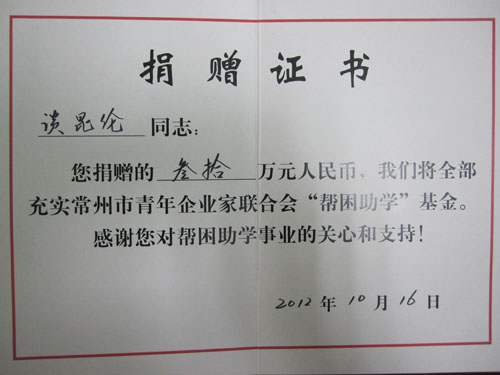 捐赠证书
谈昆伦 同志：
您捐赠的 叁拾 万元人民币，我们将全部
充实常州市青年企业家联合会“帮困助学”基金。
感谢您对帮困助学事业的关心和支持！
2012年10月16日